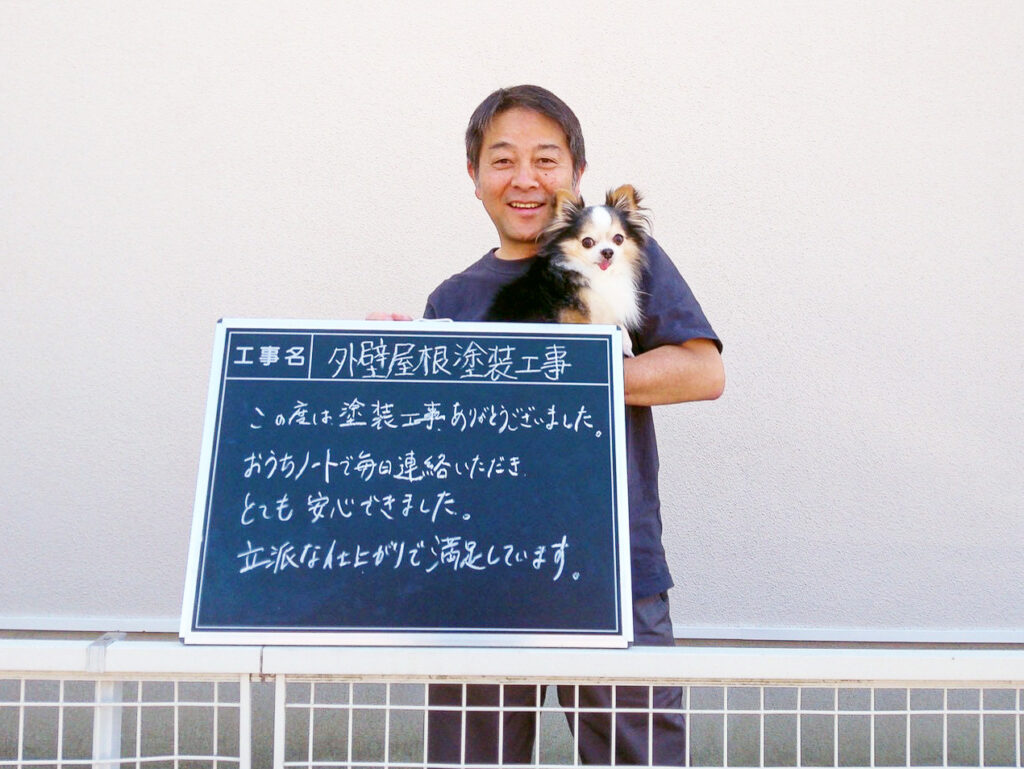 工事名 外壁屋根塗装工事
この度は塗装工事ありがとうございました。
おうちノートで毎日連絡いただき
とても安心できました。
立派な仕上がりで満足しています。